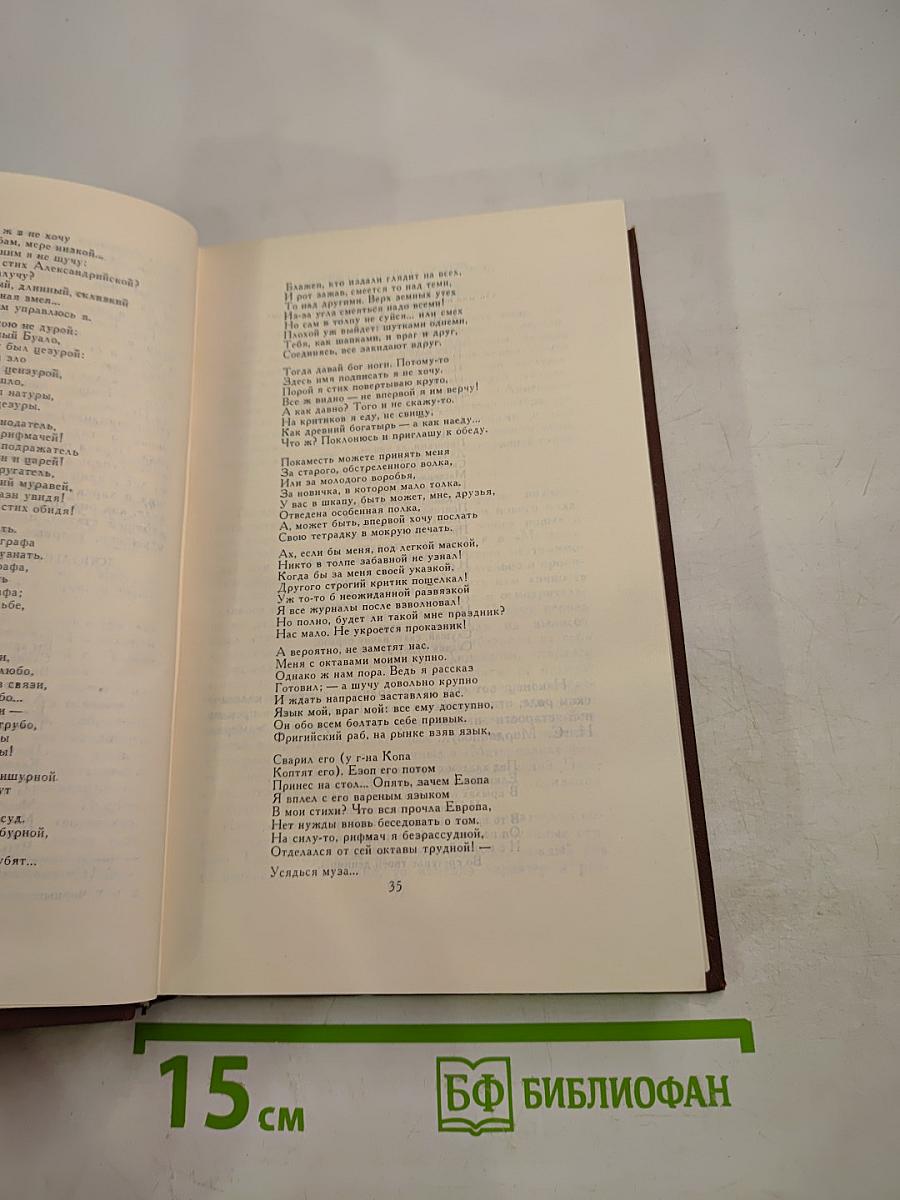 ж я не хочу
бам, мере низкой...
ним я не шучу:
стих Александрийской?
залучу?
ый, длинный, склизкий
ная змея...
м управлюсь я.
кою не дурой:
ный Буало,
был цезурой:
зло
цензурой,
шло,
натуры,
цезуры.
нодатель,
рифмачей!
подражатель
н и царей!
ругатель,
ий муравей,
азн увидя!
стих обидя!
ть.
графа
узнать.
рафа,
ть
фа;
ьбе,
и,
любо,
в связи,
бо...
и —
грубо,
ы
ы!
ишурной
ут
суд.
бурной,
убят...
Блажен, кто издали глядит на всех,
И рот зажав, смеется то над теми,
То над другими. Верх земных утех
Из-за угла смеяться надо всеми!
Но сам в толпу не суйся... или смех
Плохой уж выйдет: шутками одними,
Тебя, как шапками, и враг и друг,
Соединясь, все закидают вдруг,
Тогда давай бог ноги. Потому-то
Здесь имя подписать я не хочу.
Порой я стих повертываю круто,
Все ж видно — не впервой я им верчу!
А как давно? Того и не скажу-то.
На критиков я еду, не свищу,
Как древний богатырь — а как наеду...
Что ж? Поклонюсь и приглашу к обеду.
Покаместь можете принять меня
За старого, обстреленного волка,
Или за молодого воробья,
За новичка, в котором мало толка.
У вас в шкапу, быть может, мне, друзья,
Отведена особенная полка,
А, может быть, впервой хочу послать
Свою тетрадку в мокрую печать.
Ах, если бы меня, под легкой маской,
Никто в толпе забавной не узнал!
Когда бы за меня своей указкой,
Другого строгий критик пощелкал!
Уж то-то б неожиданной развязкой
Я все журналы после взволновал!
Но полно, будет ли такой мне праздник?
Нас мало. Не укроется проказник!
А вероятно, не заметят нас.
Меня с октавами моими купно.
Однако ж нам пора. Ведь я рассказ
Готовил; — а шучу довольно крупно
И ждать напрасно заставляю вас.
Язык мой, враг мой: все ему доступно,
Он обо всем болтать себе привык.
Фригийский раб, на рынке взяв язык,
Сварил его (у г-на Копа
Коптят его). Езоп его потом
Принес на стол... Опять, зачем Езопа
Я вплел с его вареным языком
В мои стихи? Что вся прочла Европа,
Нет нужды вновь беседовать о том.
На силу-то, рифмач я безрассудной,
Отделался от сей октавы трудной! —
Усядься муза...
35
15 см
БФ БИБЛИОФАН